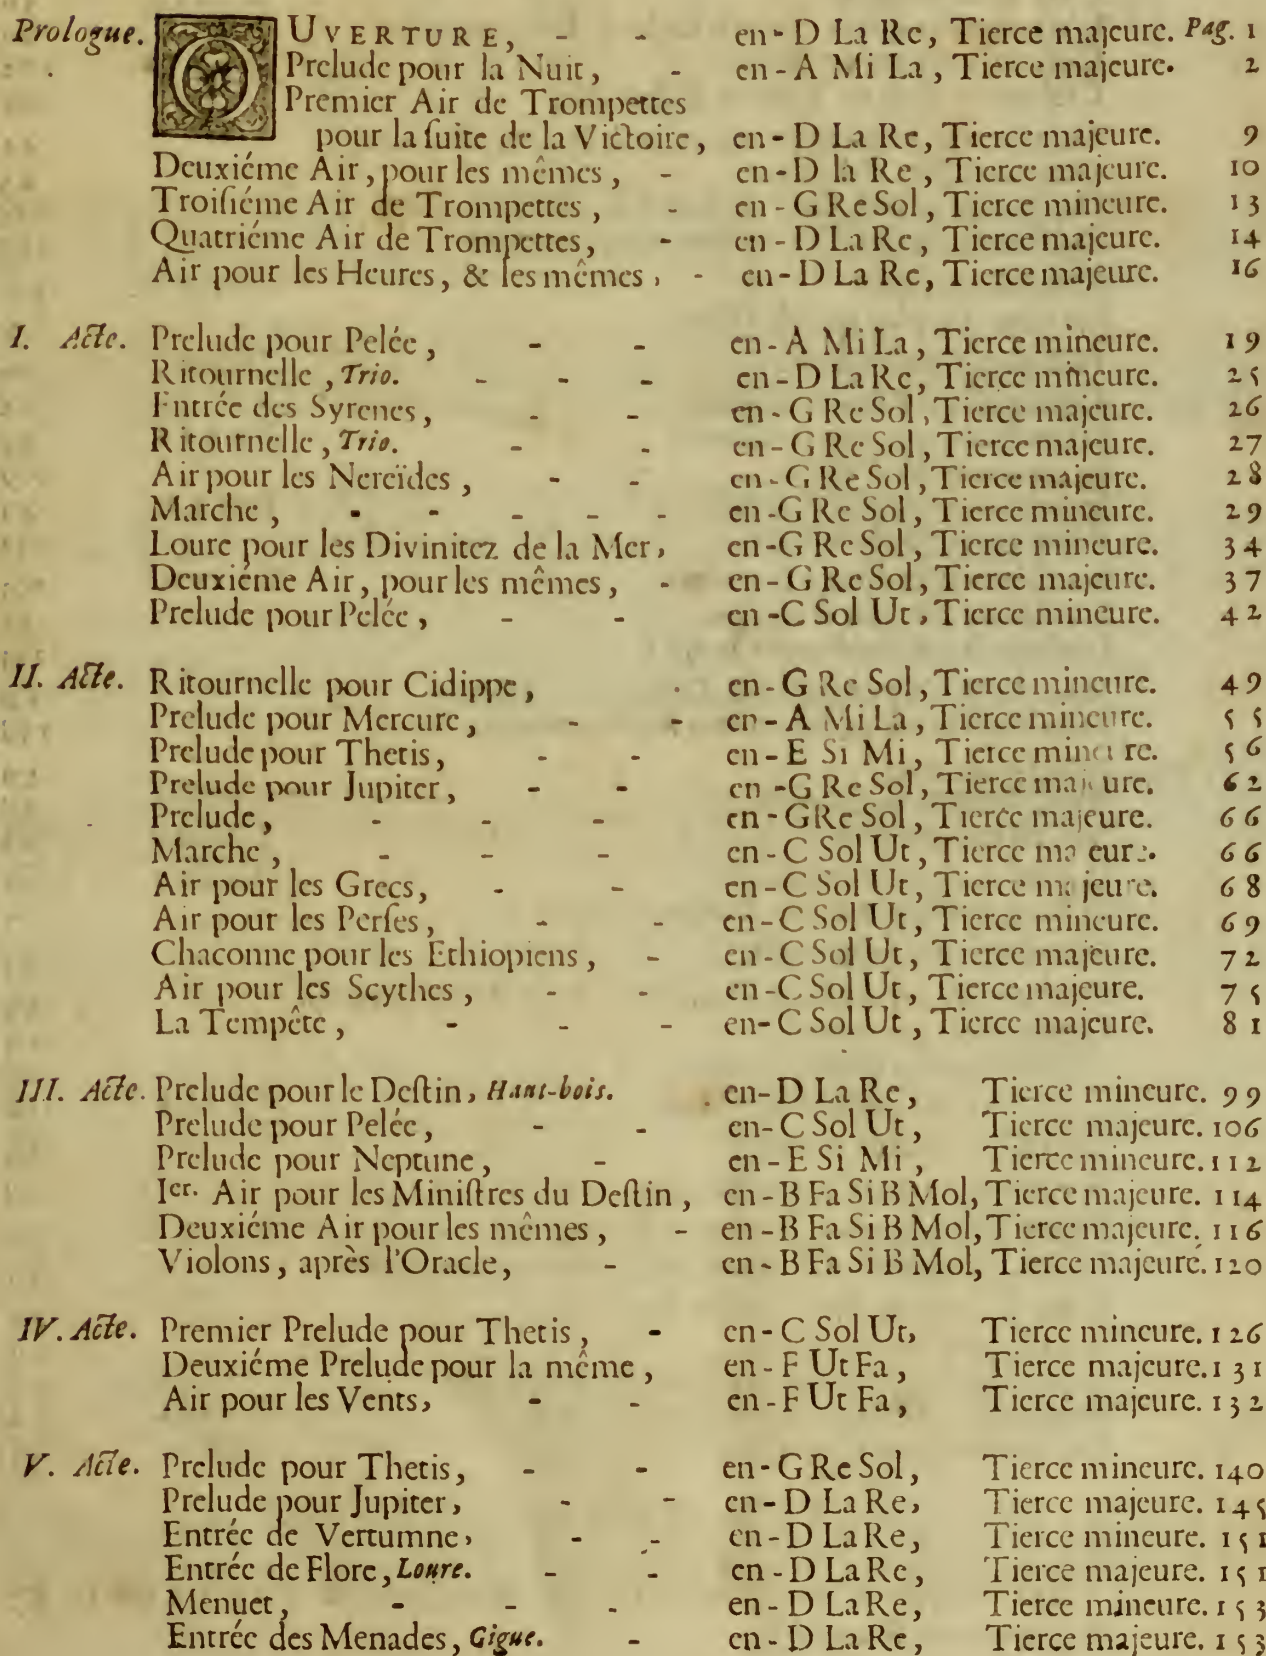 Prologue. OUVERTURE, - - en - D La Re, Tierce majeure. Pag. 1
Prelude pour la Nuit, - en - A Mi La, Tierce majeure. 2
Premier Air de Trompettes
pour la ſuite de la Victoire, en - D La Re, Tierce majeure. 9
Deuxiéme Air, pour les mêmes, - en - D la Re, Tierce majeure. 10
Troiſiéme Air de Trompettes, - en - G Re Sol, Tierce mineure. 13
Quatriéme Air de Trompettes, - en - D La Re, Tierce majeure. 14
Air pour les Heures, & les mêmes, - en - D La Re, Tierce majeure. 16
I. Acte. Prelude pour Pelée, - - en - A Mi La, Tierce mineure. 19
Ritournelle, Trio. - - - en - D La Re, Tierce mineure. 25
Entrée des Syrenes, - - en - G Re Sol, Tierce majeure. 26
Ritournelle, Trio. - - en - G Re Sol, Tierce majeure. 27
Air pour les Nereïdes, - - en - G Re Sol, Tierce majeure. 28
Marche, - - - - - en - G Re Sol, Tierce mineure. 29
Loure pour les Divinitez de la Mer, en - G Re Sol, Tierce mineure. 34
Deuxiéme Air, pour les mêmes, - en - G Re Sol, Tierce majeure. 37
Prelude pour Pelée, - - en - C Sol Ut, Tierce mineure. 42
II. Acte. Ritournelle pour Cidippe, - en - G Re Sol, Tierce mineure. 49
Prelude pour Mercure, - - en - A Mi La, Tierce mineure. 55
Prelude pour Thetis, - - en - E Si Mi, Tierce mineure. 56
Prelude pour Jupiter, - - en - G Re Sol, Tierce majeure. 62
Prelude, - - - en - G Re Sol, Tierce majeure. 66
Marche, - - - en - C Sol Ut, Tierce majeure. 66
Air pour les Grecs, - - en - C Sol Ut, Tierce majeure. 68
Air pour les Perſes, - - en - C Sol Ut, Tierce mineure. 69
Chaconne pour les Ethiopiens, - en - C Sol Ut, Tierce majeure. 72
Air pour les Scythes, - - en - C Sol Ut, Tierce majeure. 75
La Tempête, - - - en - C Sol Ut, Tierce majeure. 81
III. Acte. Prelude pour le Deſtin, Haut-bois. en - D La Re, Tierce mineure. 99
Prelude pour Pelée, - - en - C Sol Ut, Tierce majeure. 106
Prelude pour Neptune, - en - E Si Mi, Tierce mineure. 112
Ier. Air pour les Miniſtres du Deſtin, en - B Fa Si B Mol, Tierce majeure. 114
Deuxiéme Air pour les mêmes, - en - B Fa Si B Mol, Tierce majeure. 116
Violons, après l'Oracle, - en - B Fa Si B Mol, Tierce majeure. 120
IV. Acte. Premier Prelude pour Thetis, - en - C Sol Ut, Tierce mineure. 126
Deuxiéme Prelude pour la même, en - F Ut Fa, Tierce majeure. 131
Air pour les Vents, - - en - F Ut Fa, Tierce majeure. 132
V. Acte. Prelude pour Thetis, - - en - G Re Sol, Tierce mineure. 140
Prelude pour Jupiter, - - en - D La Re, Tierce majeure. 145
Entrée de Vertumne, - - en - D La Re, Tierce mineure. 151
Entrée de Flore, Loure. - - en - D La Re, Tierce majeure. 151
Menuet, - - - en - D La Re, Tierce mineure. 153
Entrée des Menades, Gigue. - en - D La Re, Tierce majeure. 153